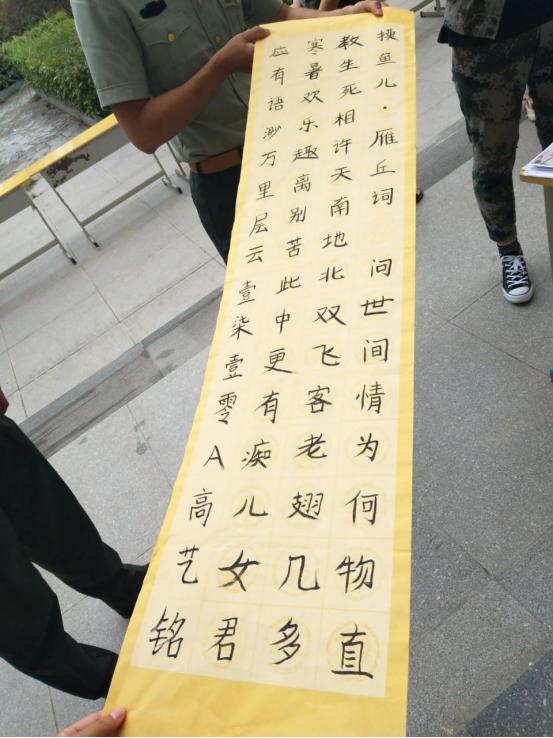 摸鱼儿·雁丘词 问世间情为何物直
教生死相许天南地北双飞客老翅几多
寒暑欢乐趣离别苦此中更有痴儿女君
应有语渺万里层云壹柒壹零A高艺铭